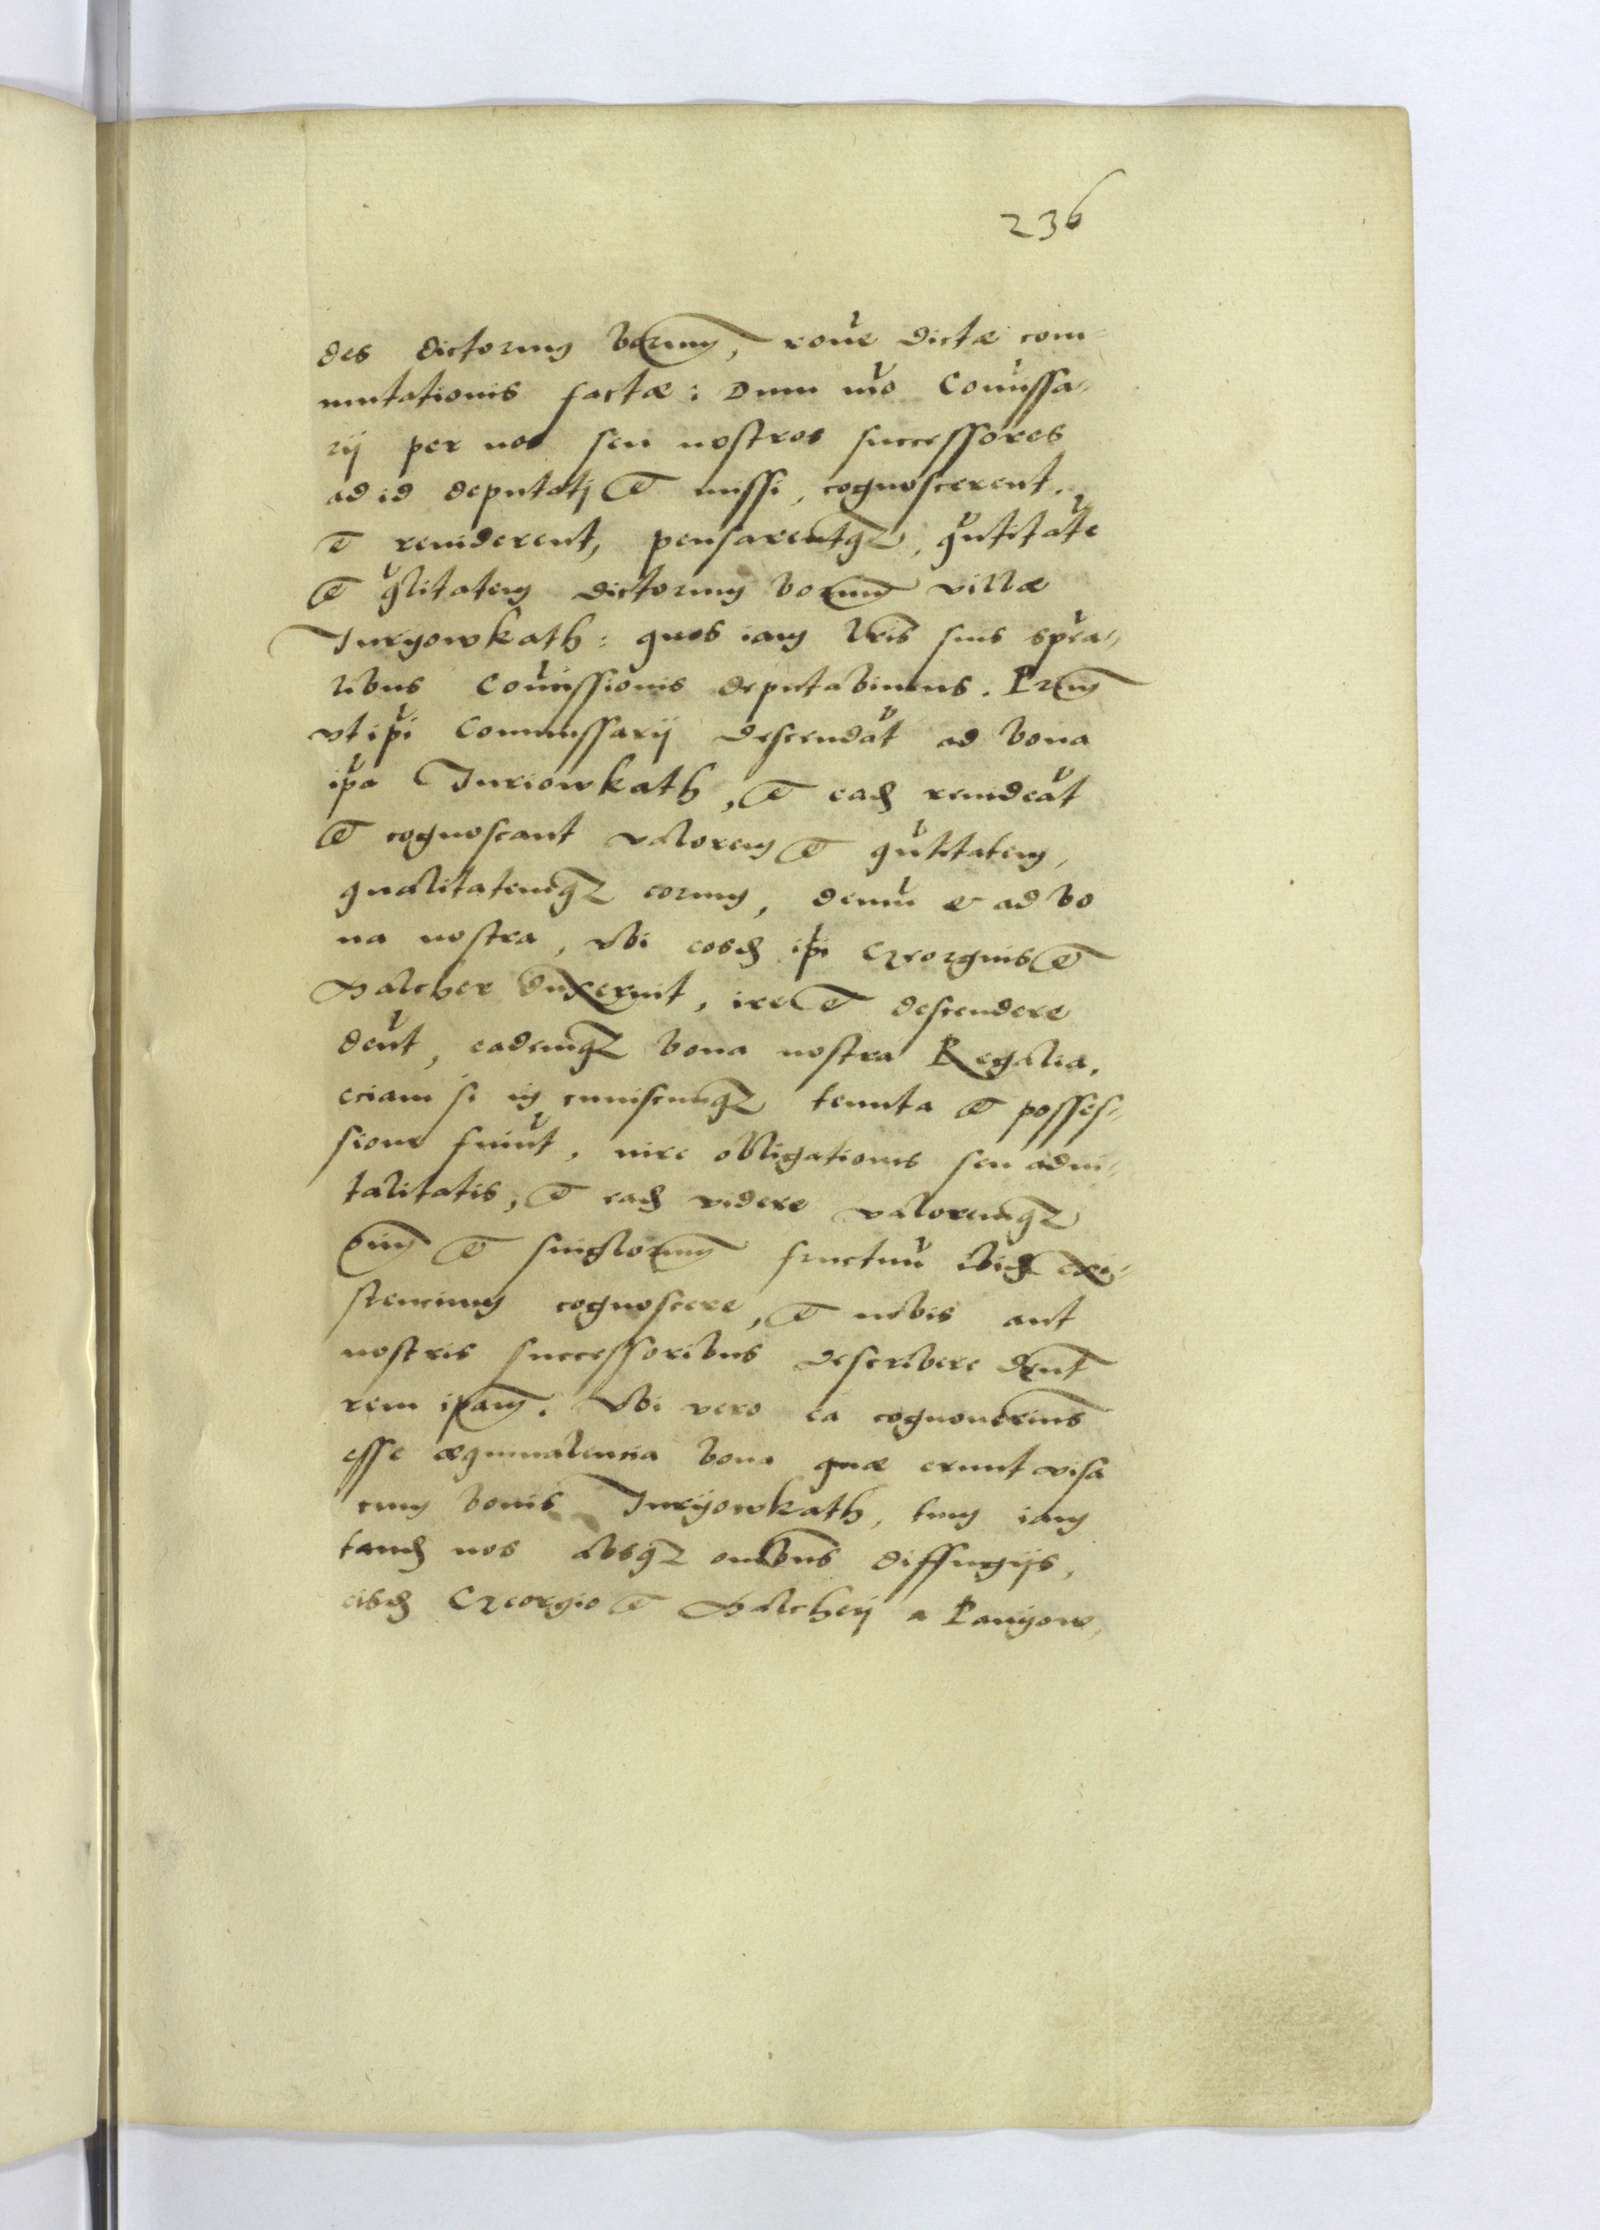 236
des dictorum bonorum, rõne dictæ com-
mutationis factæ: Dum mõ Com̃issa-
rij per nos seu nostros successores
ad id deputatj et missi, cognoscerent.
et reuiderent, pensarentq̃, qũtitatẽ
et q̃litatem dictorum bonorum villæ
Juryowkath: quos iam lr̃is suis sp̃ia-
libus Com̃issionis deputabimus. Primum
vt ip̃i Commissarij descendãt ad bona
ip̃a Juriowkath, et eadẽ reuideãt
et cognoscant valorem et qũtitatem,
qualitatemq̃ eorum, demũ et ad bo
na nostra, vbi eosdẽ ip̃i Georgius et
Halcher duxerint, ire et descendere
debũt, eademq̃ bona nostra Regalia,
eciam si in cuiuscumq̃ tenuta et posses-
sione fuiñt, iure obligationis seu adui-
talitatis, et eadẽ videre valoremq̃
om̃ium et sing̃lorum fructuũ ibidẽ exi-
stencium cognoscere, et nobis aut
nostris successoribus describere debent
rem ip̃am. Vbi vero ea cognouerimus
esse æquiualencia bona quæ erunt visa
cum bonis Juryowkath, tum iam
tandẽ nos absq̃ omĩbus diffugijs,
eisdẽ Georgio et Halcherj a Panyow,